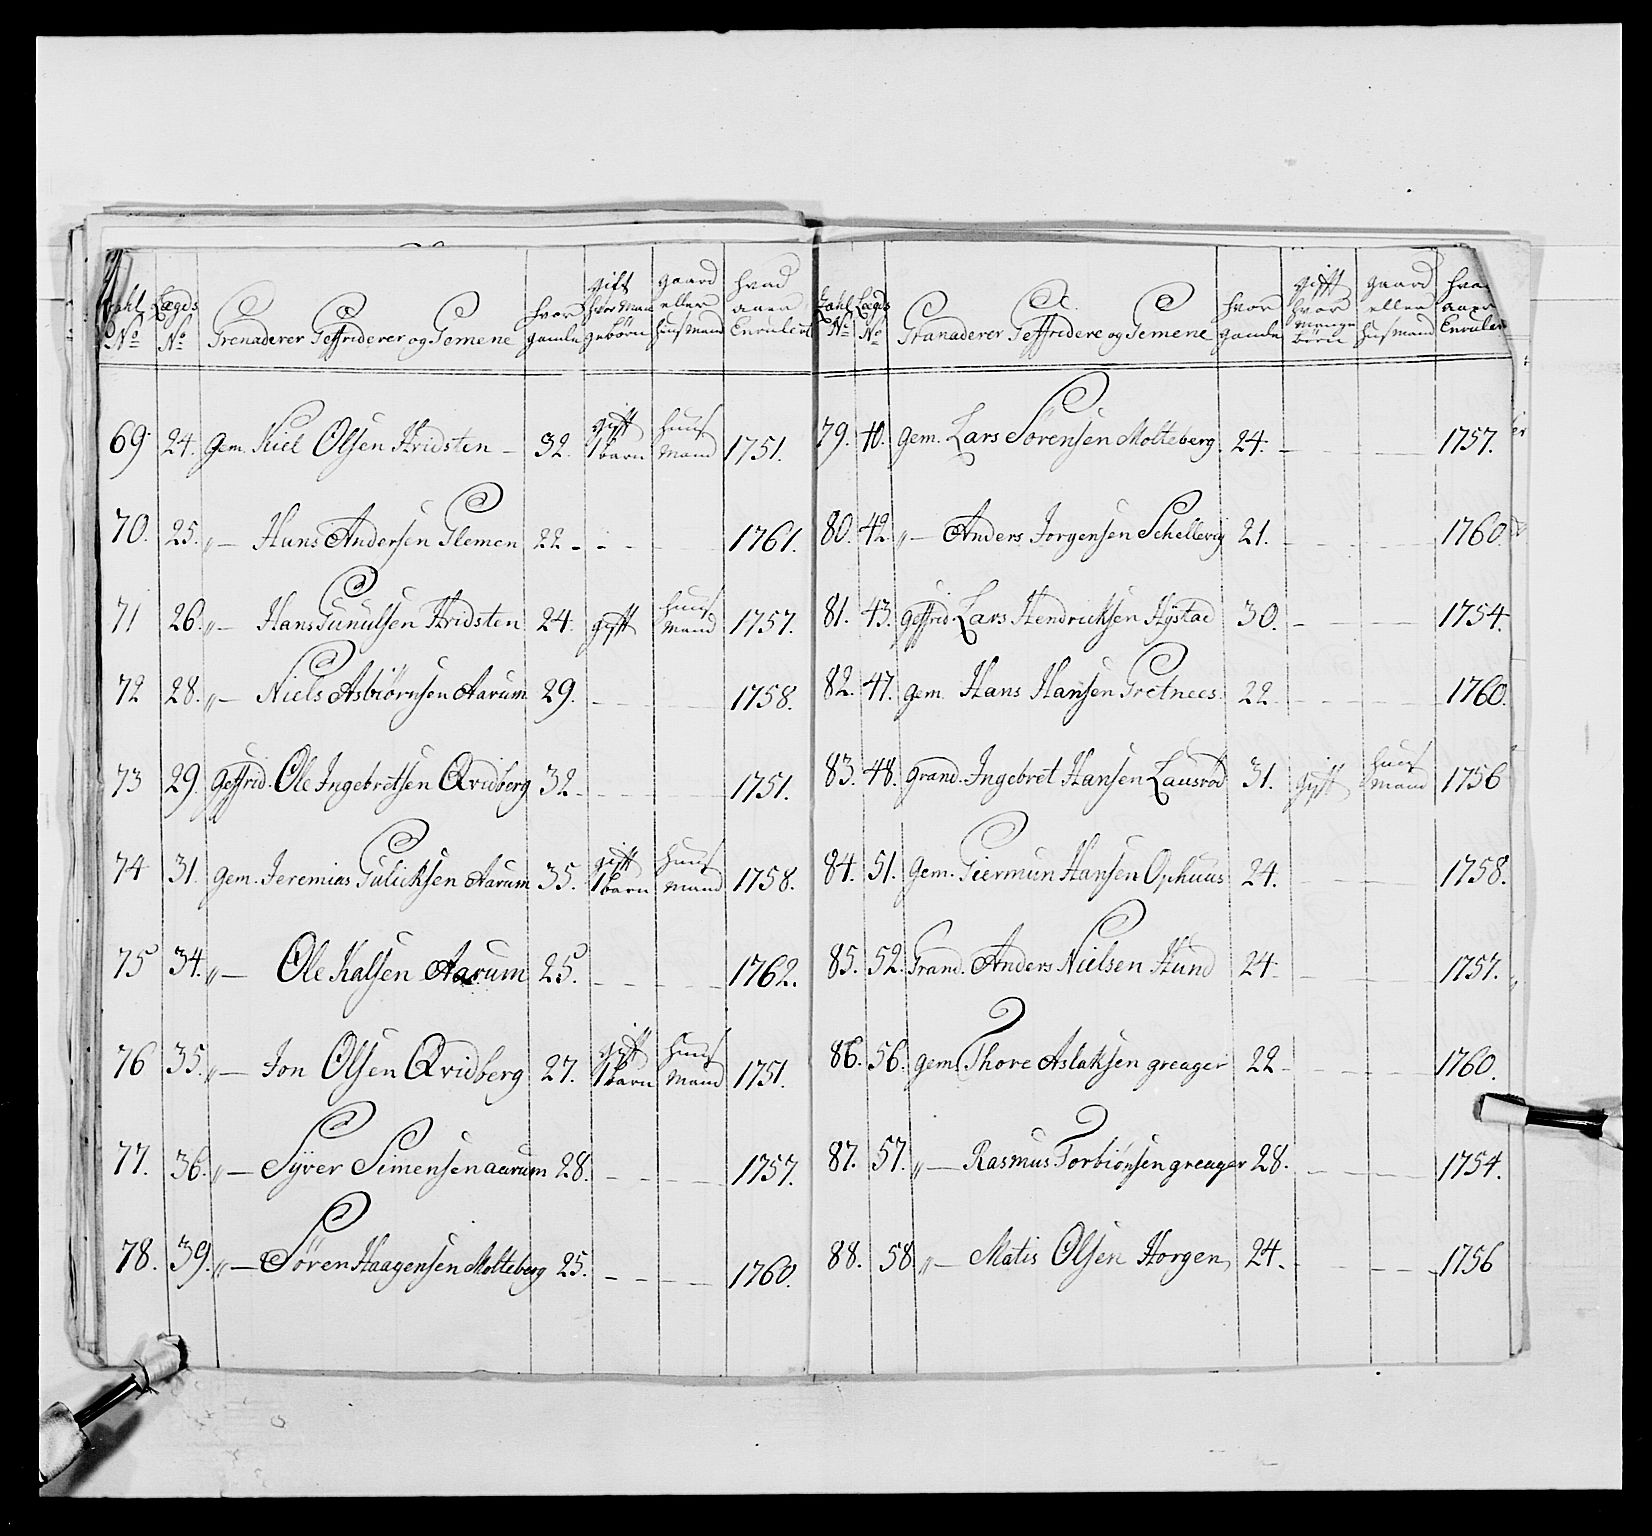 Tahl No | Lægds No | Grenaderer Geffriderer og Gemene | hvor gamle | gift hvor Man gebørn | gaard eller huusmand | hvad aaer Enrulert
69 | 24. | gem. Kiel Olsen Hvidsten | 32. | gift 1 barn | huus mand | 1751.
70. | 25. | „— Hans Andersen Glemen | 22 | 1761.
71 | 26. | „— Hans Gunulsen Hvidsten | 24. | gyft | huus mand | 1757.
72 | 28. | „— Niels Asbiørnsen Aarum | 29. | 1758.
73 | 29. | geffrid. Ole Ingebretsen Qvidberg | 32 | 1751.
74 | 31. | gem. Jeremias Gulicksen Aarum | 35. | gift 1 barn | huus mand | 1758.
75 | 34. | „— Ole Kalsen Aarum | 25. | 1762.
76 | 35. | „— Jon Olsen Qvidberg | 27. | gift 1 barn | huus mand | 1751.
77. | 36. | „— Syver Simensen aarum | 28. | 1757.
78. | 39. | „— Søren Haagensen Molteberg | 25. | 1760.
Tahl No | Lægds No | Granaderer Geffridere og Gemene | hvor gamle | gifft hvor mange børn | gaard eller huusmand | hvad aaer Enruler
79. | 40. | gem. Lars Sørensen Molteberg | 24. | 1757.
80. | 42. | „— Anders Jorgensen Schellevig | 21. | 1760.
81. | 43. | geffrid. Lars Hendricksen Hystad | 30. | 1754.
82. | 47. | gem. Hans Hansen Gretnees | 22 | 1760.
83. | 48. | grand. Ingebret Hansen Lausrød | 31. | gyft | huus mand | 1756
84. | 51. | gem. Giermun Hansen Ophuus | 24. | 1758.
85. | 52. | Grand. Anders Nielsen Hund | 24 | 1757.
86. | 56. | gem. Thore Aslaksen greager | 22 | 1760.
87. | 57. | „— Rasmus Torbiønsen greager | 28. | 1754.
88. | 58 | „— Matis Olsen Horgen | 24. | 1756